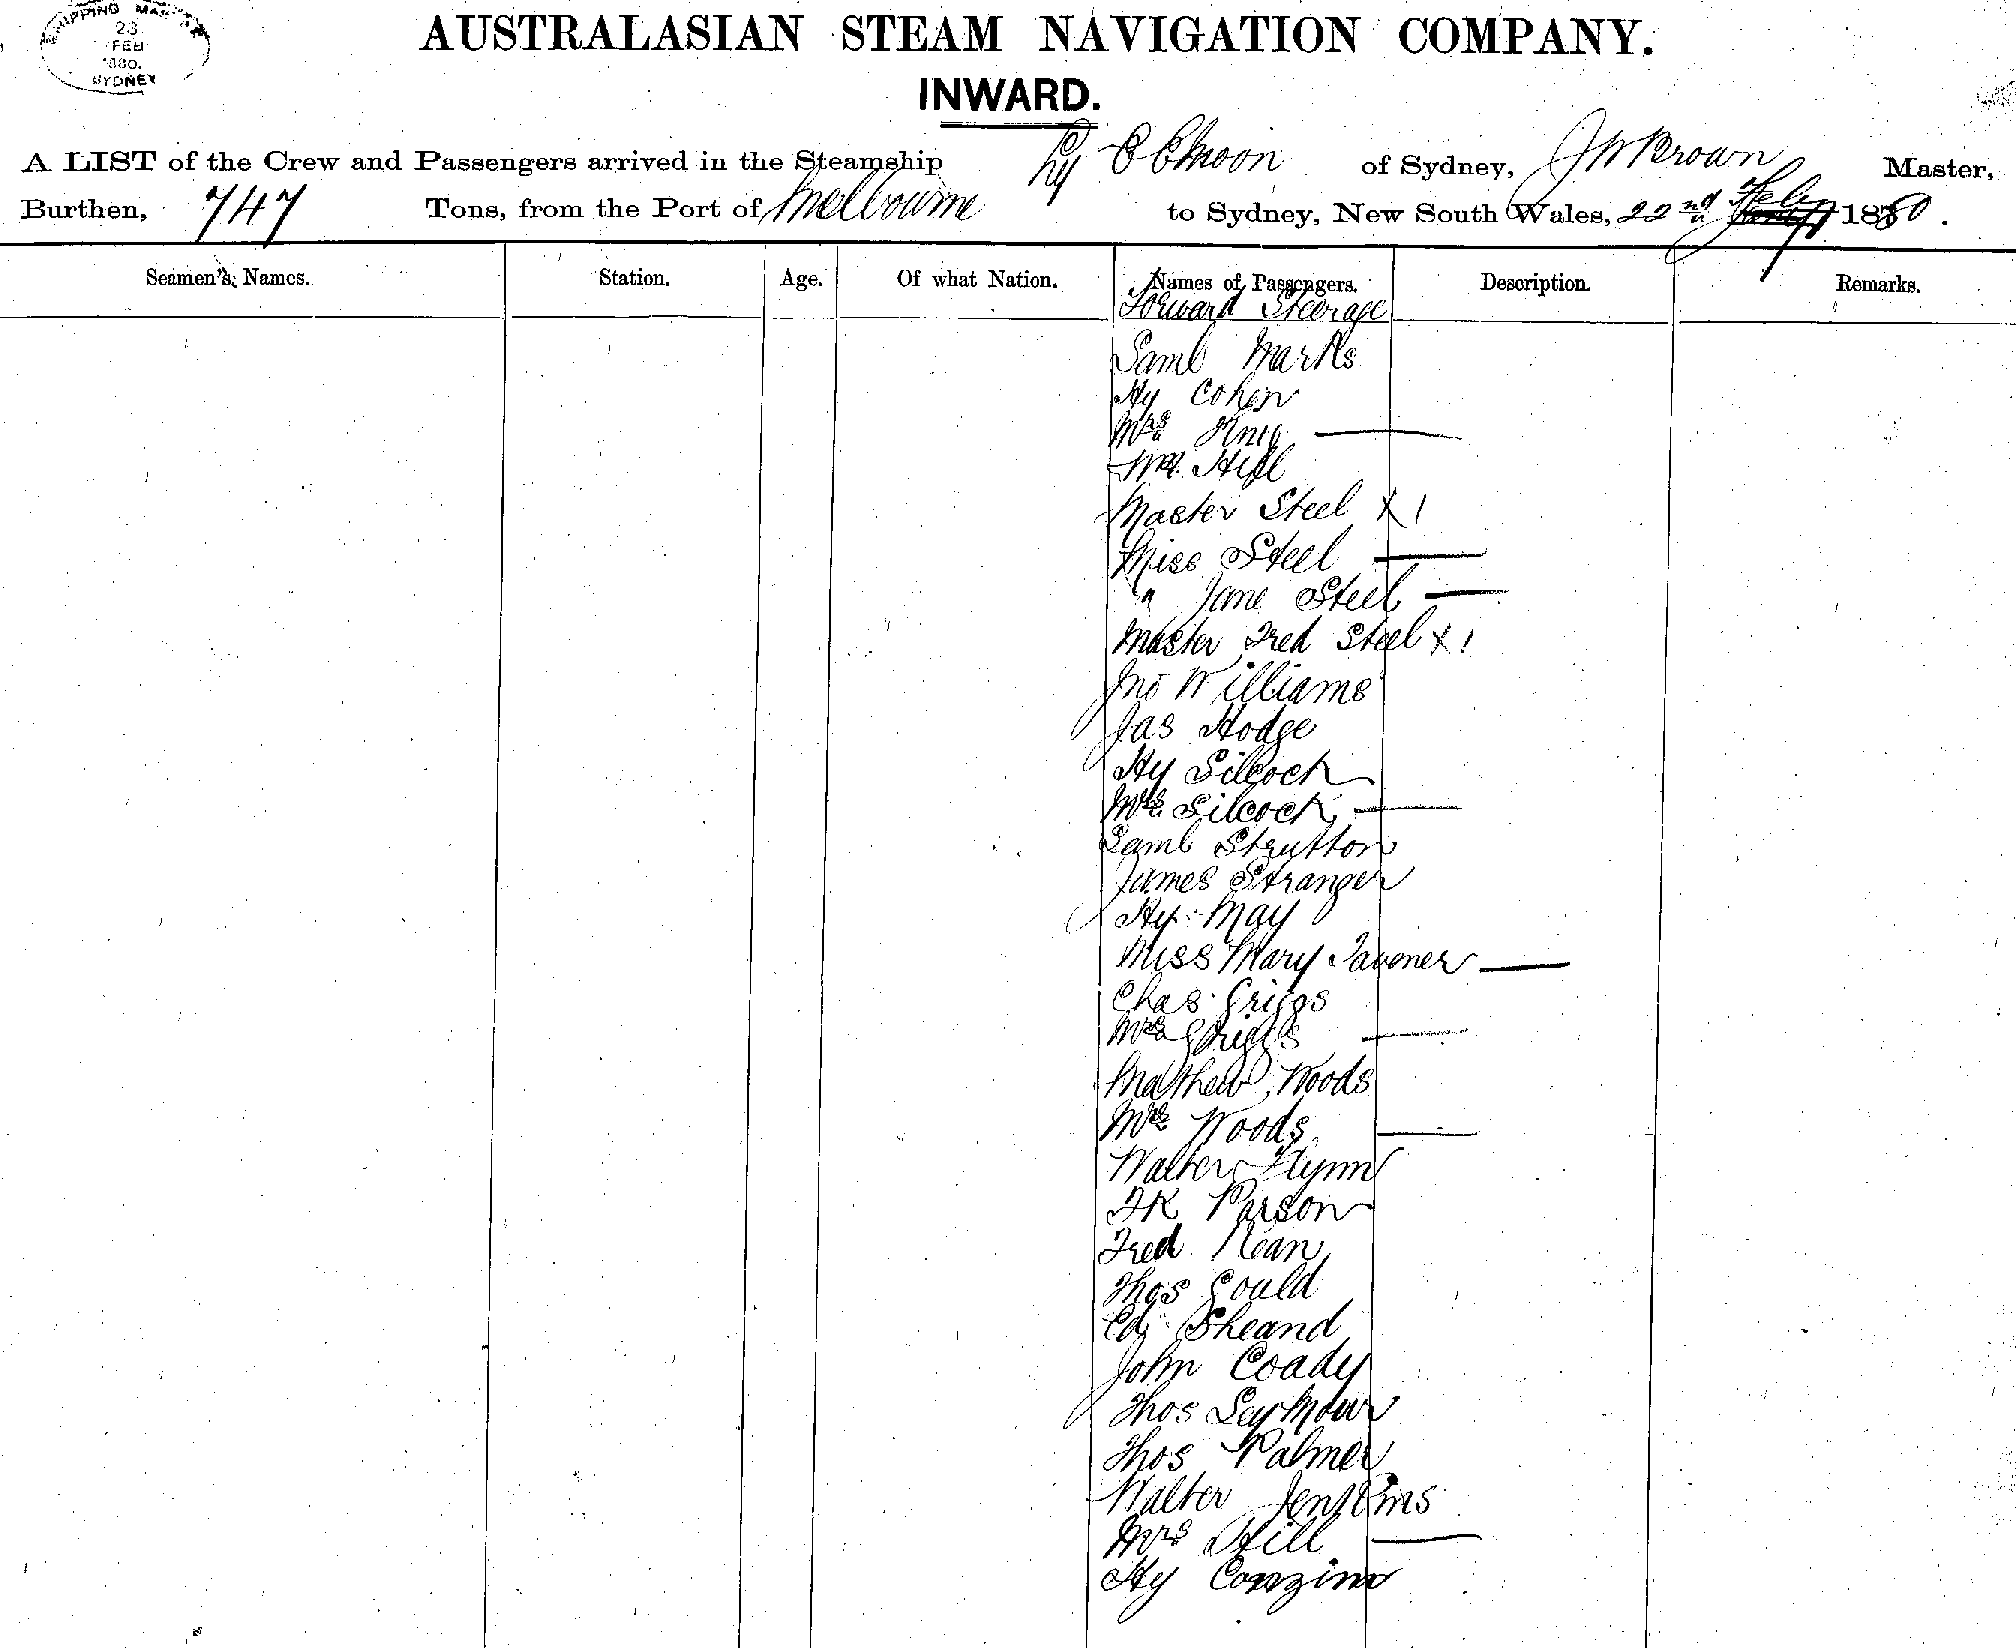 SHIPPING MASTER
23
FEB
1880.
SYDNEY
AUSTRALASIAN STEAM NAVIGATION COMPANY.
INWARD.
A LIST of the Crew and Passengers arrived in the Steamship of Sydney, J W Brown Master,
Burthen, 747 Tons, from the Port of Melbourne to Sydney, New South Wales, 22nd Feby 1880.
Seamen's Names. Station. Age. Of what Nation. Names of Passengers. Description. Remarks.
Forward Steerage
Saml Marks
Hy Cohen
Mrs King
Hill
Master Steel X 1
Miss Steel
" Jane Steel
Master Fred Steel X 1
Jno Williams
Jas Hodge
Hy Silcock
Mrs Silcock
Saml Strutton
James Stranger
Hy May
Miss Mary Tavener
Chas Griggs
Mrs Griggs
Mathew Woods
Mrs Woods
Walter Flynn
Parson
Fred Kean
Thos Gould
Sheand
John Coady
Thos Seymour
Thos Palmer
Walter Jenkins
Mrs Hill
Hy